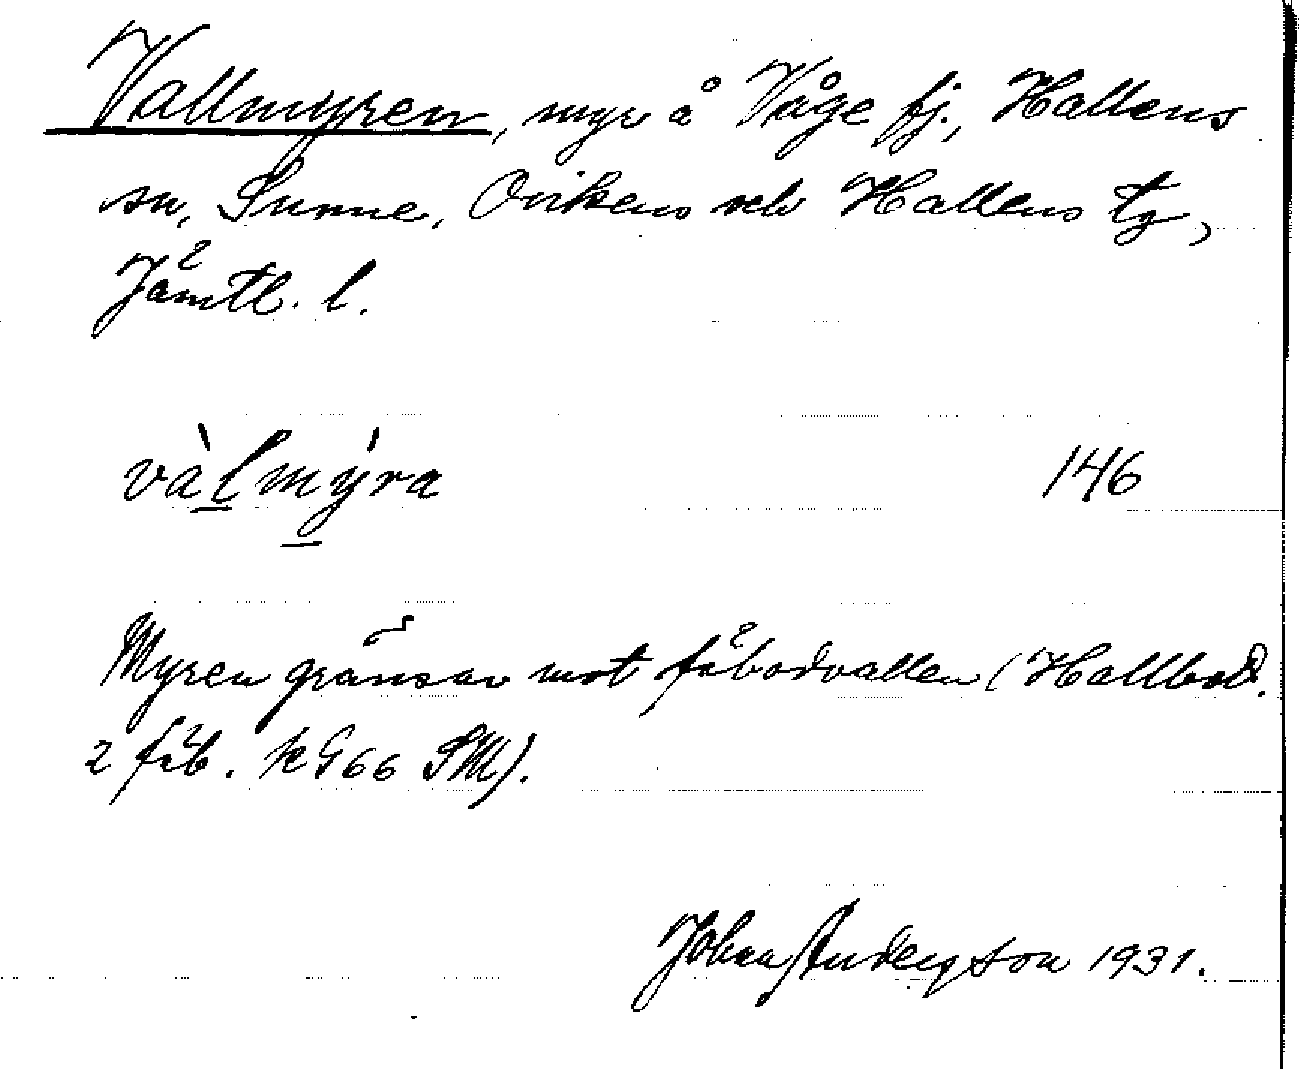 Vallmyren, myr å Våge fj., Hallens
sn, Sunne, Ovikens och Hallens tg,
Jämtl. l.
vàlmýra 146
Myren gränsar mot fäbodvallen (Hallbod.
2 fäb. k G66 SM).
Johan Anderson 1931.